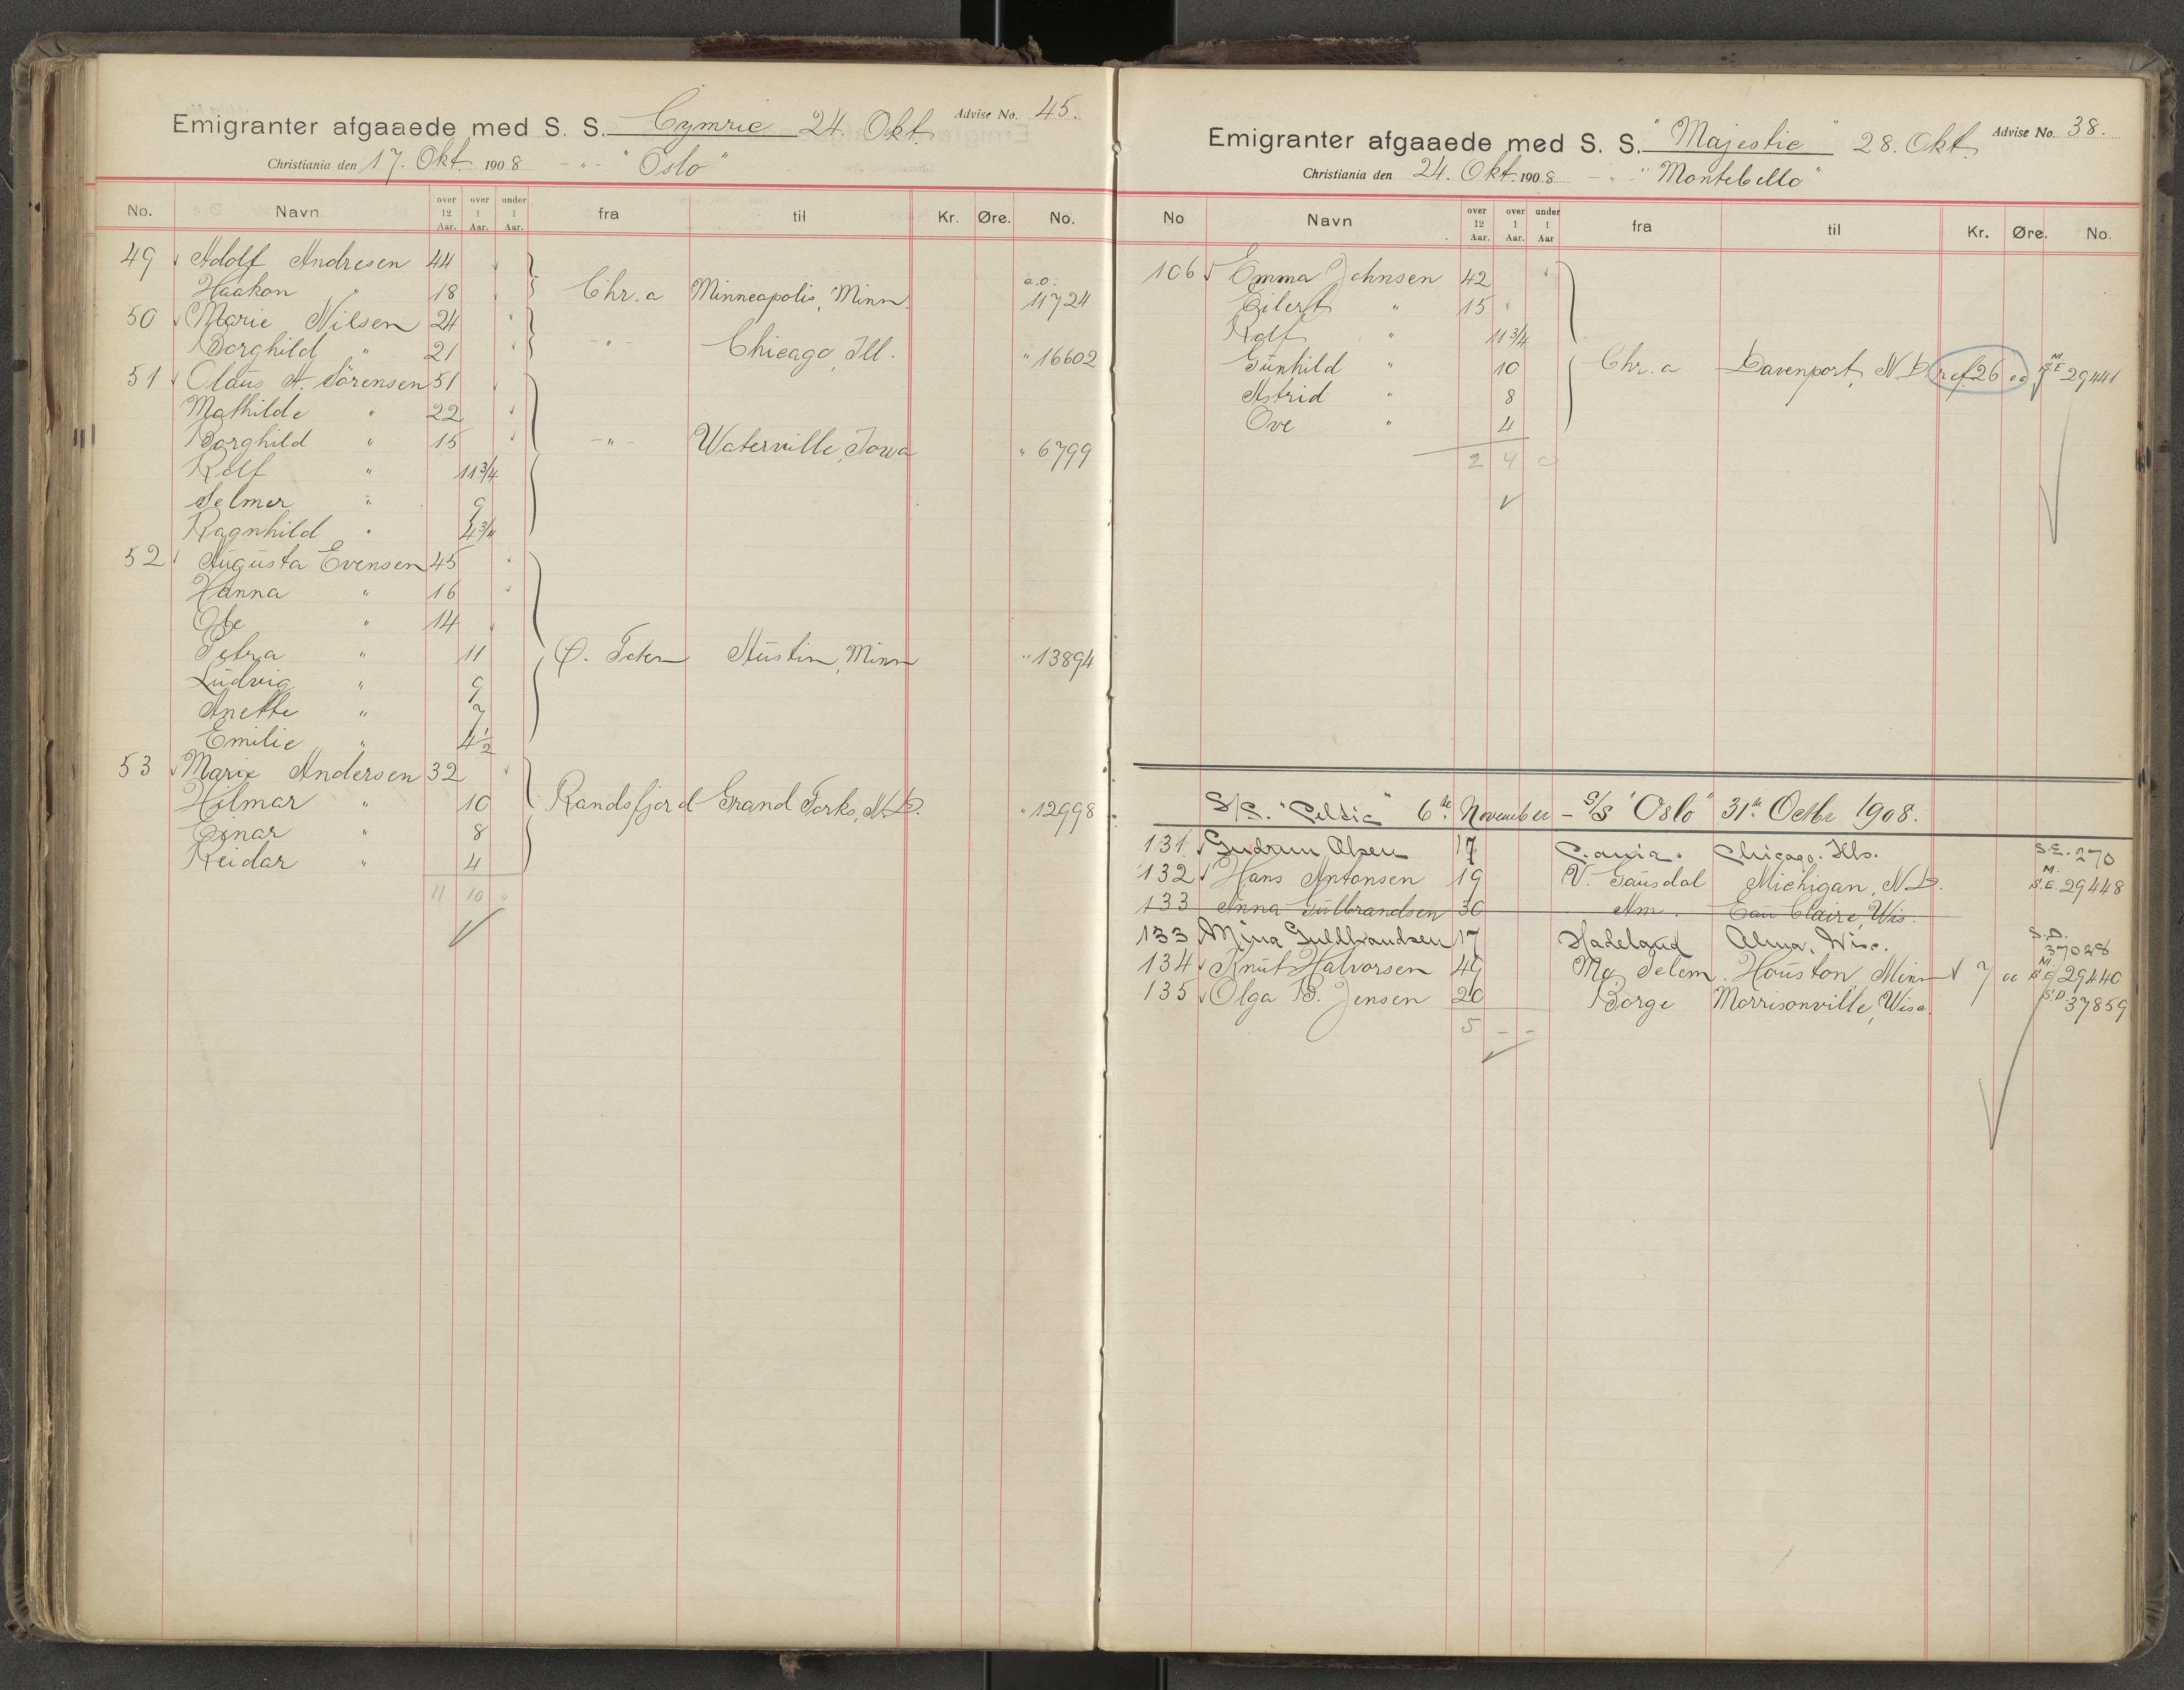 Emigranter afgaaede med S. S. Cymric 24. Okt. Advise No. 45.
Christiania den 17. Okt. 1908 - " - "Oslo"
No. Navn over 12 Aar. over 1 Aar. under 1 Aar. fra til Kr. Øre. No.
49 Adolf Andresen 44
Haakon " 18 Chr.a Minneapolis, Minn. e.o. 11724
50 Marie Nilsen 24
Borghild " 21 - " - Chicago, Ill. " 16602
51 Claus A. Sörensen 51
Mathilde " 22
Borghild " 15 - " - Waterville, Iowa " 6799
Rolf " 11 3/4
Selmer " 9
Ragnhild " 4 3/4
52 Augusta Evensen 45
Hanna " 16
Ole " 14
Petra " 11 Ö. Toten Austin, Minn " 13894
Ludvig " 9
Anette " 7
Emilie " 4 1/2
53 Marie Andersen 32
Hilmar " 10 Randsfjord Grand Forks, N.D. " 12998
Einar " 8
Reidar " 4
11 10 0
Emigranter afgaaede med S. S. "Majestic" 28. Okt. Advise No. 38.
Christiania den 24. Okt. 1908 - " - "Montebello"
No Navn over 12 Aar. over 1 Aar. under 1 Aar fra til Kr. Øre. No.
106 Emma Johnsen 42
Eilert " 15
Rolf " 11 3/4
Gunhild " 10 Chr.a Davenport, N.D. ref. 26 00 M. S.E. 29441
Astrid " 8
Ove " 4
2 4 0
S/S. "Celtic" 6th November - S/S "Oslo" 31th Octbr 1908.
131 Gudrun Olsen 17 C.ania. Chicago. Ills. S.E. 270
132 Hans Antonsen 19 V. Gausdal Michigan, N.D. M. S.E. 29448
133 Anna Gulbrandsen 30 Am. Eau Claire, Wis.
133 Mina Guldbrandsen 17 Hadeland Alma, Wisc. S.D. 37028
134 Knut Halvorsen 49 Mo, Telem. Houston, Minn 7 00 M. S.E. 29440
135 Olga B. Jensen 20 Borge Morrisonville, Wisc. S.D. 37859
5 - -